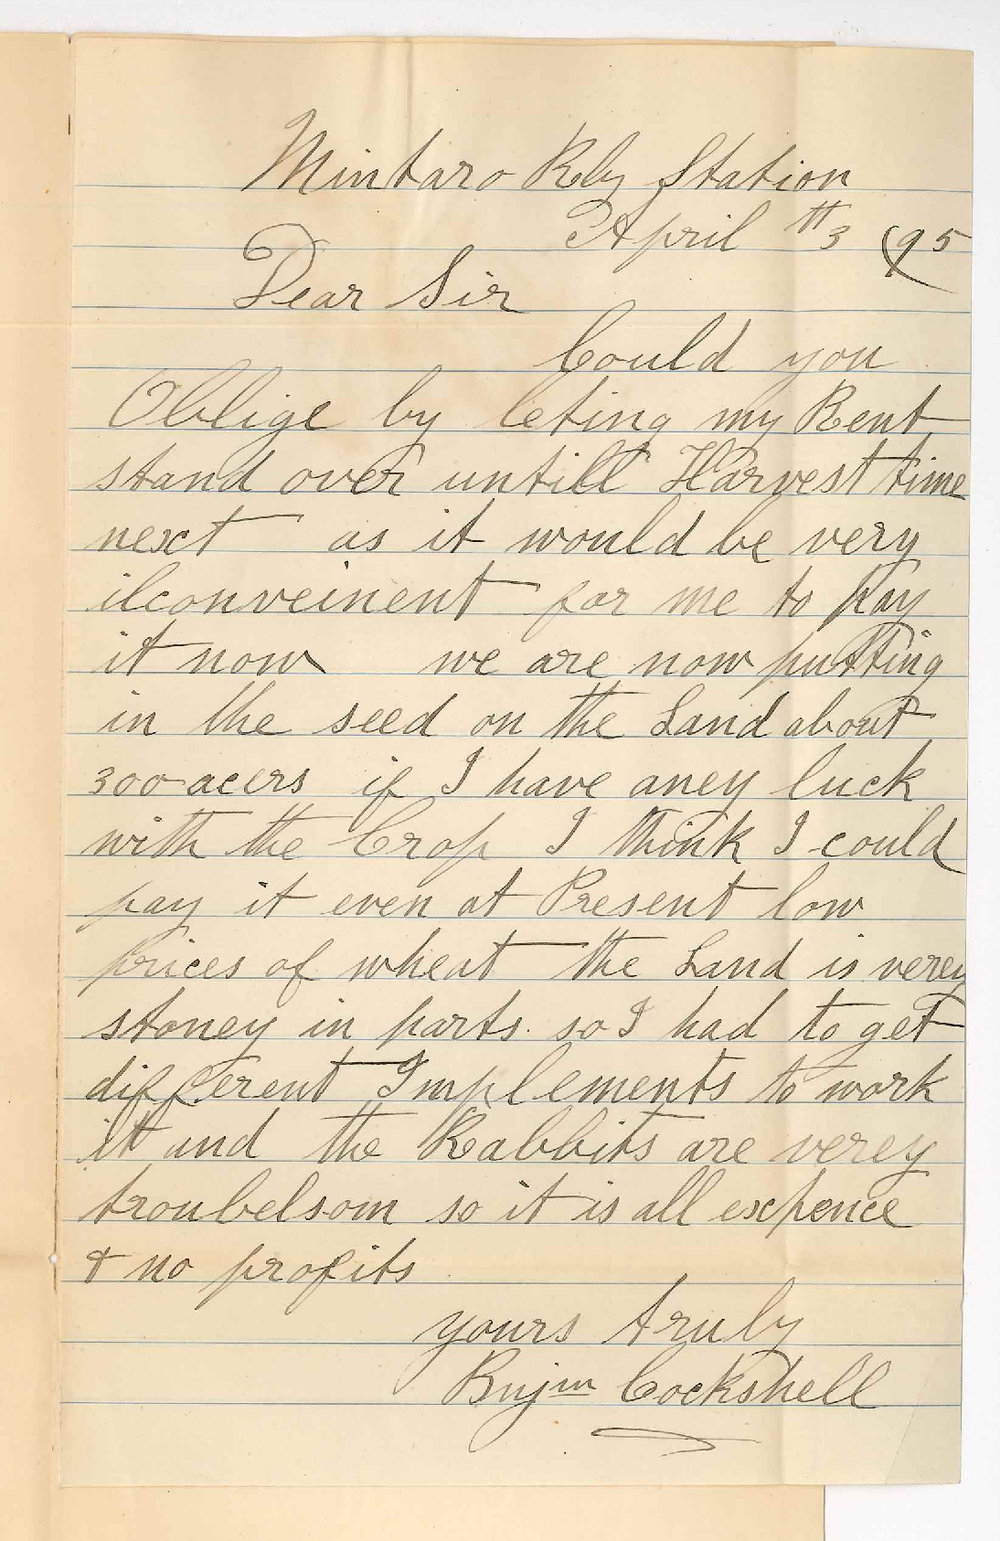 Mintaro Rly Station
April 3 95
Dear Sir
Could you
Oblige by leting my Rent
stand over untill Harvest time
next as it would be very
ilconveinent for me to pay
it now we are now putting
in the seed on the Land about
300 acers if I have aney luck
with the Crop I think I could
pay it even at Present low
prices of wheat the Land is verey
stoney in parts. so I had to get
different Implements to work
it and the Rabbits are verey
troubelsom so it is all expence
& no profits
yours truly
Bnjm Cockshell